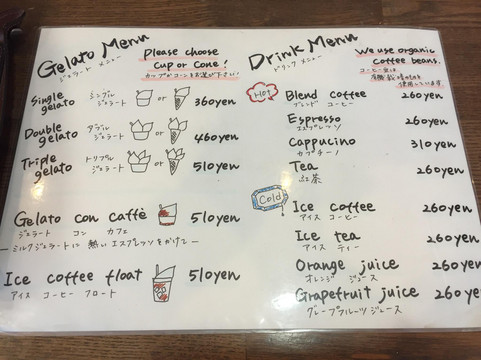 Gelato Menu
ジェラート メニュー
Please choose
cup or cone!
カップかコーンをお選び下さい!
Single
gelato
シングル
ジェラート
or
360yen
Double
gelato
ダブル
ジェラート
or
460yen
Triple
gelato
トリプル
ジェラート
or
510yen
Gelato con caffè
ジェラート コン カフェ
510yen
ミルクジェラートに 熱い エスプレッソを かけて
Ice coffee float
アイス コーヒー フロート
510yen
Drink Menu
ドリンク メニュー
We use organic
coffee beans.
コーヒー豆は
有機栽培のものを
使用しています
Hot
Blend coffee
ブレンド コーヒー
260yen
Espresso
エスプレッソ
260yen
Cappucino
カプチーノ
310yen
Tea
紅茶
260yen
Cold
Ice coffee
アイス コーヒー
260yen
Ice tea
アイス ティー
260yen
Orange juice
オレンジ ジュース
260yen
Grapefruit juice
グレープフルーツ ジュース
260yen